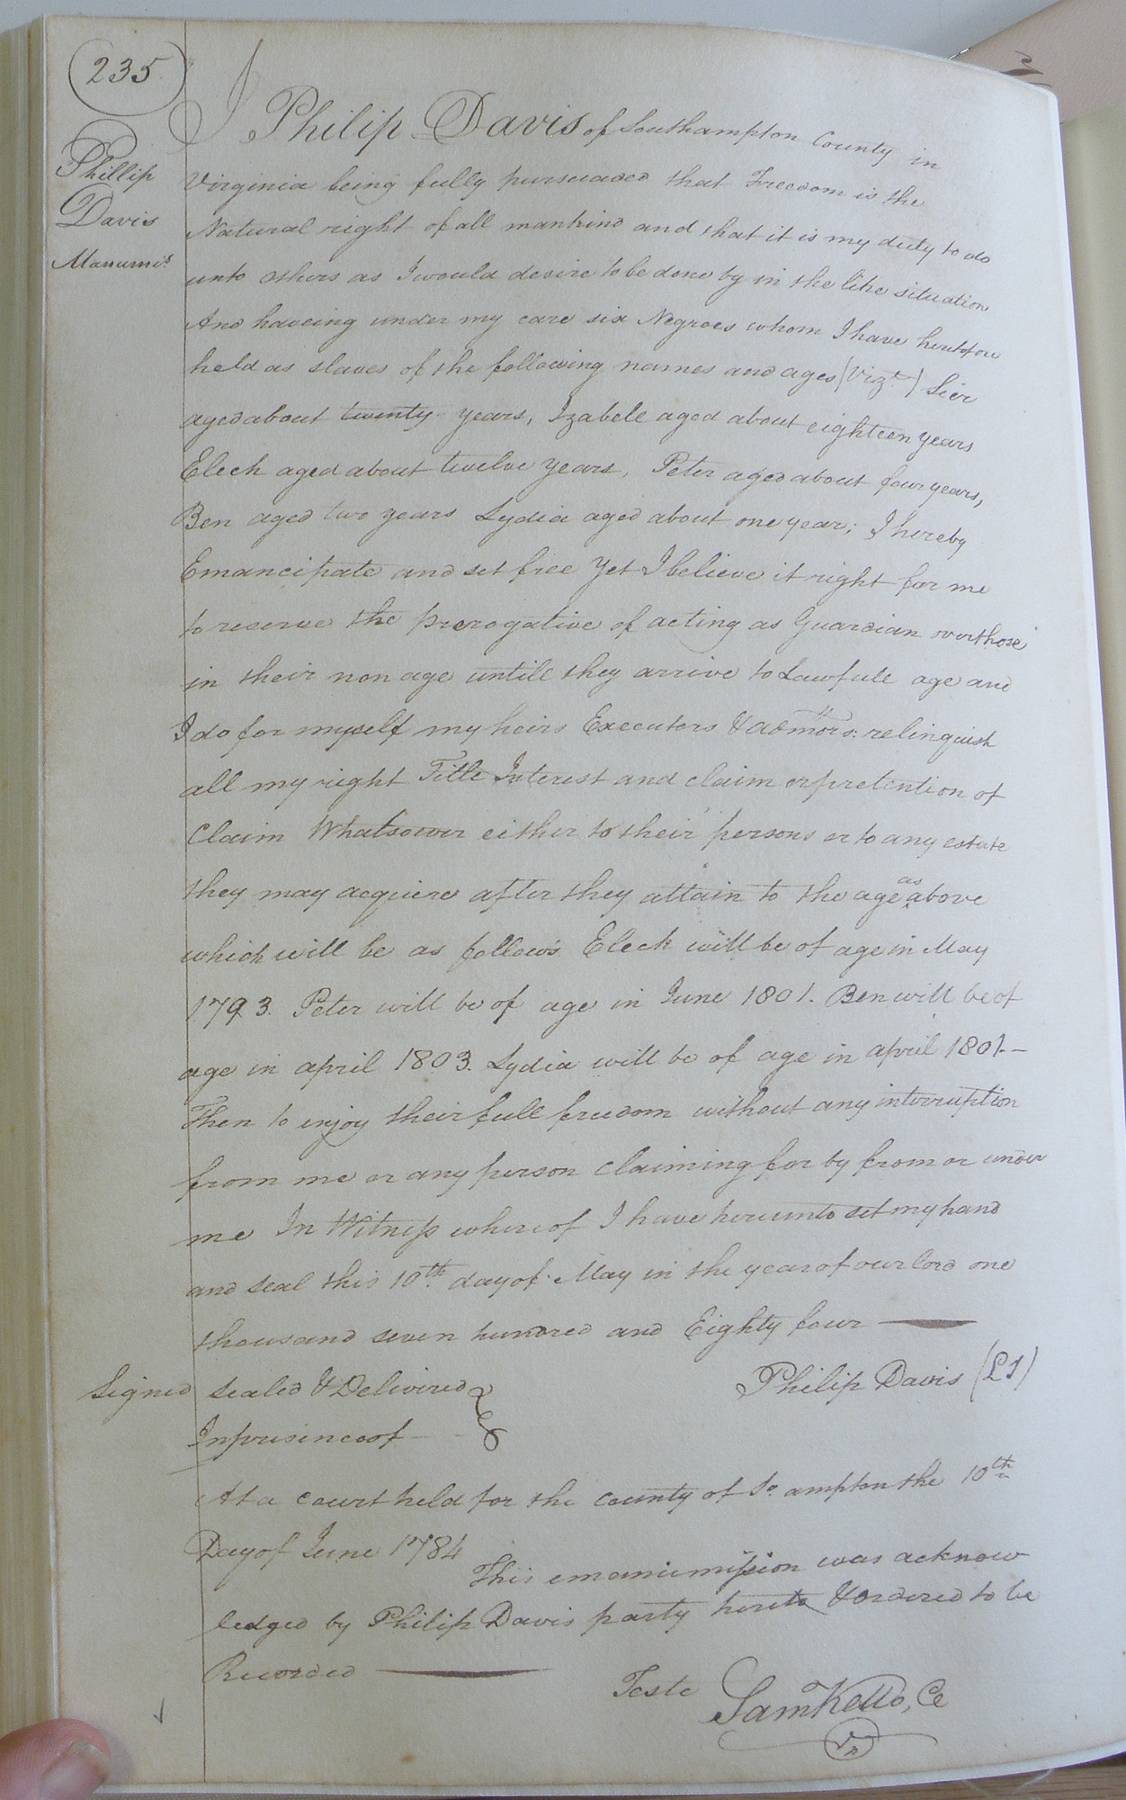 235
Phillip
Davis
Manumis
I Philip Davis of Southampton County in
Virginia being fully pursuaded that Freedom is the
Natural right of all mankind and that it is my duty to do
unto others as I would desire to be done by in the like situation
And haveing under my care six Negroes whom I have heretofore
held as slaves of the following names and ages (Vizt.)
aged about twenty years, Izabele aged about eighteen years
Eleck aged about twelve years, Peter aged about four years,
Ben aged two years Lydia aged about one year; I hereby
Emancipate and set free Yet I believe it right for me
to reserve the prerogative of acting as Guardian over those
in their non age untill they arrive to Lawfull age and
I do for myself my heirs Executers & admors: relinquish
all my right Title Interest and claim or pretention of
Claim Whatsoever either to their persons or to any estate
they may acquiere after they attain to the age as above
which will be as follows Eleck will be of age in May
1793. Peter will be of age in June 1801. Ben will be of
age in april 1803. Lydia will be of age in april 1801.—
Then to enjoy their full freedom without any interruption
from me or any person claiming for by from or under
me In Witness whereof I have hereunto set my hand
and seal this 10th day of May in the year of our lord one
thousand seven hundred and Eighty four —
Signed sealed & Delivered Philip Davis (LS)
In presence of
At a court held for the county of So. ampton the 10th
Day of June 1784
This emanumission was acknow
ledged by Philip Davis party hereto & ordered to be
Recorded —
Teste Sam Kello, Ce